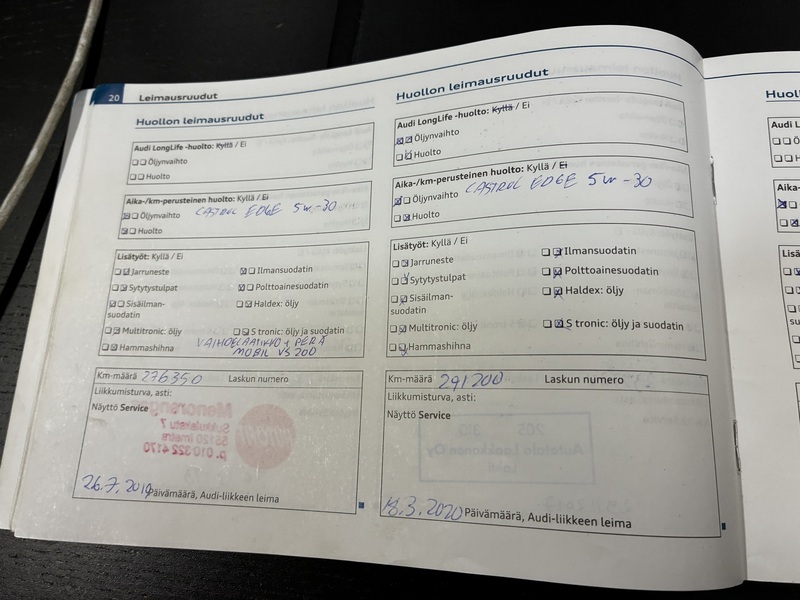 20 Leimausruudut
Huollon leimausruudut
Audi LongLife -huolto: Kyllä / Ei
Öljynvaihto
Huolto
Aika-/km-perusteinen huolto: Kyllä / Ei
Öljynvaihto CASTROL EDGE 5W-30
Huolto
Lisätyöt: Kyllä / Ei
Jarruneste
Ilmansuodatin
Sytytystulpat
Polttoainesuodatin
Sisäilman-
suodatin
Haldex: öljy
Multitronic: öljy
S tronic: öljy ja suodatin
Hammashihna
VAIHDELAATIKKO + PERÄ
MOBIL VS 200
Km-määrä 276350 Laskun numero
Liikkumisturva, asti:
Näyttö Service
Menorengas
Sukkulakatu 7
55120 Imatra
p. 010 322 4170
26.7.2019 Päivämäärä, Audi-liikkeen leima
Huollon leimausruudut
Audi LongLife -huolto: Kyllä / Ei
Öljynvaihto
Huolto
Aika-/km-perusteinen huolto: Kyllä / Ei
Öljynvaihto CASTROL EDGE 5W-30
Huolto
Lisätyöt: Kyllä / Ei
Jarruneste
Ilmansuodatin
Sytytystulpat
Polttoainesuodatin
Sisäilman-
suodatin
Haldex: öljy
Multitronic: öljy
S tronic: öljy ja suodatin
Hammashihna
Km-määrä 291200 Laskun numero
Liikkumisturva, asti:
Näyttö Service
18.3.2020 Päivämäärä, Audi-liikkeen leima